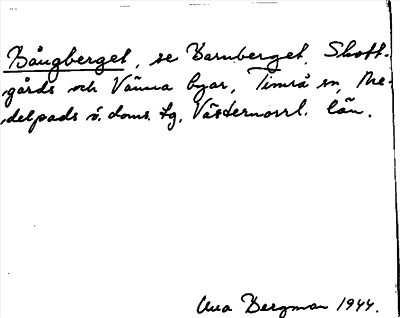 Bångberget, se Barnberget, Skott-
gårds och Vänna byar, Timrå sn, Me-
delpads ö. doms. tg, Västernorrl. län.
Ava Bergman 1944.